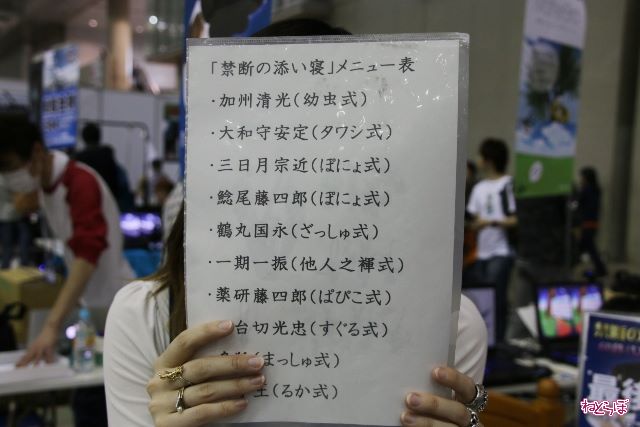 「禁断の添い寝」メニュー表
・加州清光(幼虫式)
・大和守安定(タワシ式)
・三日月宗近(ぽにょ式)
・鯰尾藤四郎(ぽにょ式)
・鶴丸国永(ざっしゅ式)
・一期一振(他人之褌式)
・薬研藤四郎(ぱぴこ式)
台切光忠(すぐる式)
(まっしゅ式)
王(るか式)
最後
ねとらぼ